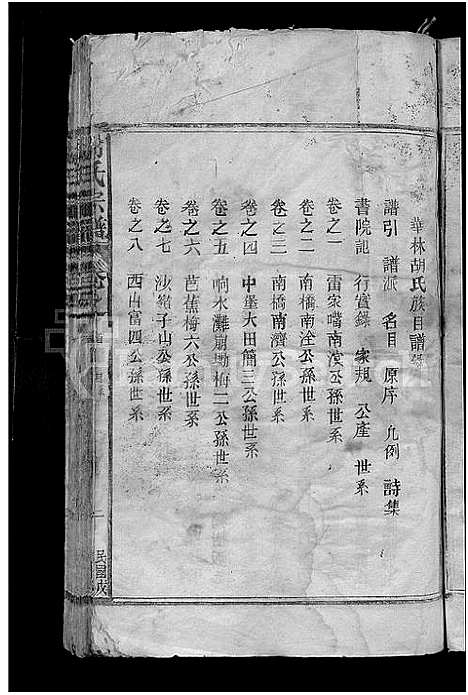 華林胡氏族目譜
譜引 譜派 名目 原序 凡例 詩集
書院記 行實錄 家規 公產 世系
卷之一 雷家嘴南滂公孫世系
卷之二 南橋南淦公孫世系
卷之三 南橋南濟公孫世系
卷之四 中堡大田簡三公孫世系
卷之五 响水灘廟坳梅二公孫世系
卷之六 芭蕉梅六公孫世系
卷之七 沙嶺子山公孫世系
卷之八 西山富四公孫世系
胡氏宗譜
民國戊